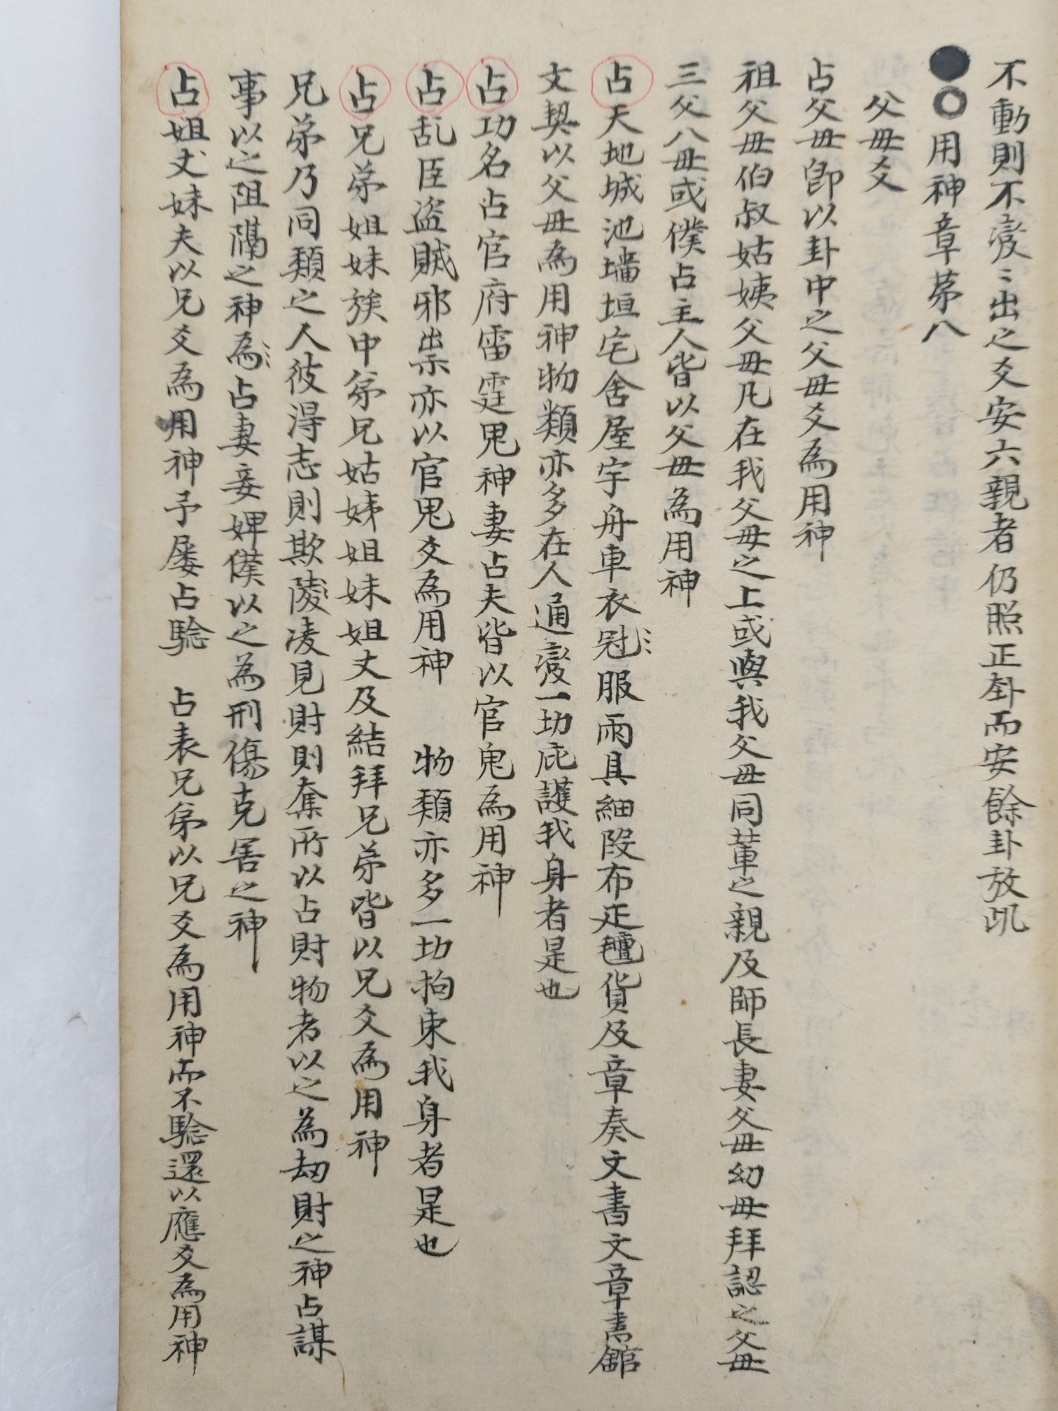 不動則不變〻出之爻安六親者仍照正卦而安餘卦放此
用神章第八
父母爻
占父母即以卦中之父母爻為用神
祖父母伯叔姑姨父母凡在我父母之上或與我父母同輩之親及師長妻父母幼母拜認之父母
三父八母或僕占主人皆以父母為用神
占天地城池墻垣宅舍屋宇舟車衣冠〻服雨具細段布疋氊貨及章奏文書文章書館
文契以父母為用神物類亦多在人通變一切庇護我身者是也
占功名占官府雷霆鬼神妻占夫皆以官鬼為用神
占乱臣盗賊邪祟亦以官鬼爻為用神 物類亦多一切拘束我身者是也
占兄弟姐妹族中弟兄姑姨姐妹姐丈及結拜兄弟皆以兄爻為用神
兄弟乃同類之人彼得志則欺陵凌見財則奪所以占財物者以之為刼財之神占謀
事以之阻隔之神為〻占妻妾婢僕以之為刑傷克害之神
占姐丈妹夫以兄爻為用神予屡占驗 占表兄弟以兄爻為用神而不驗還以應爻為用神